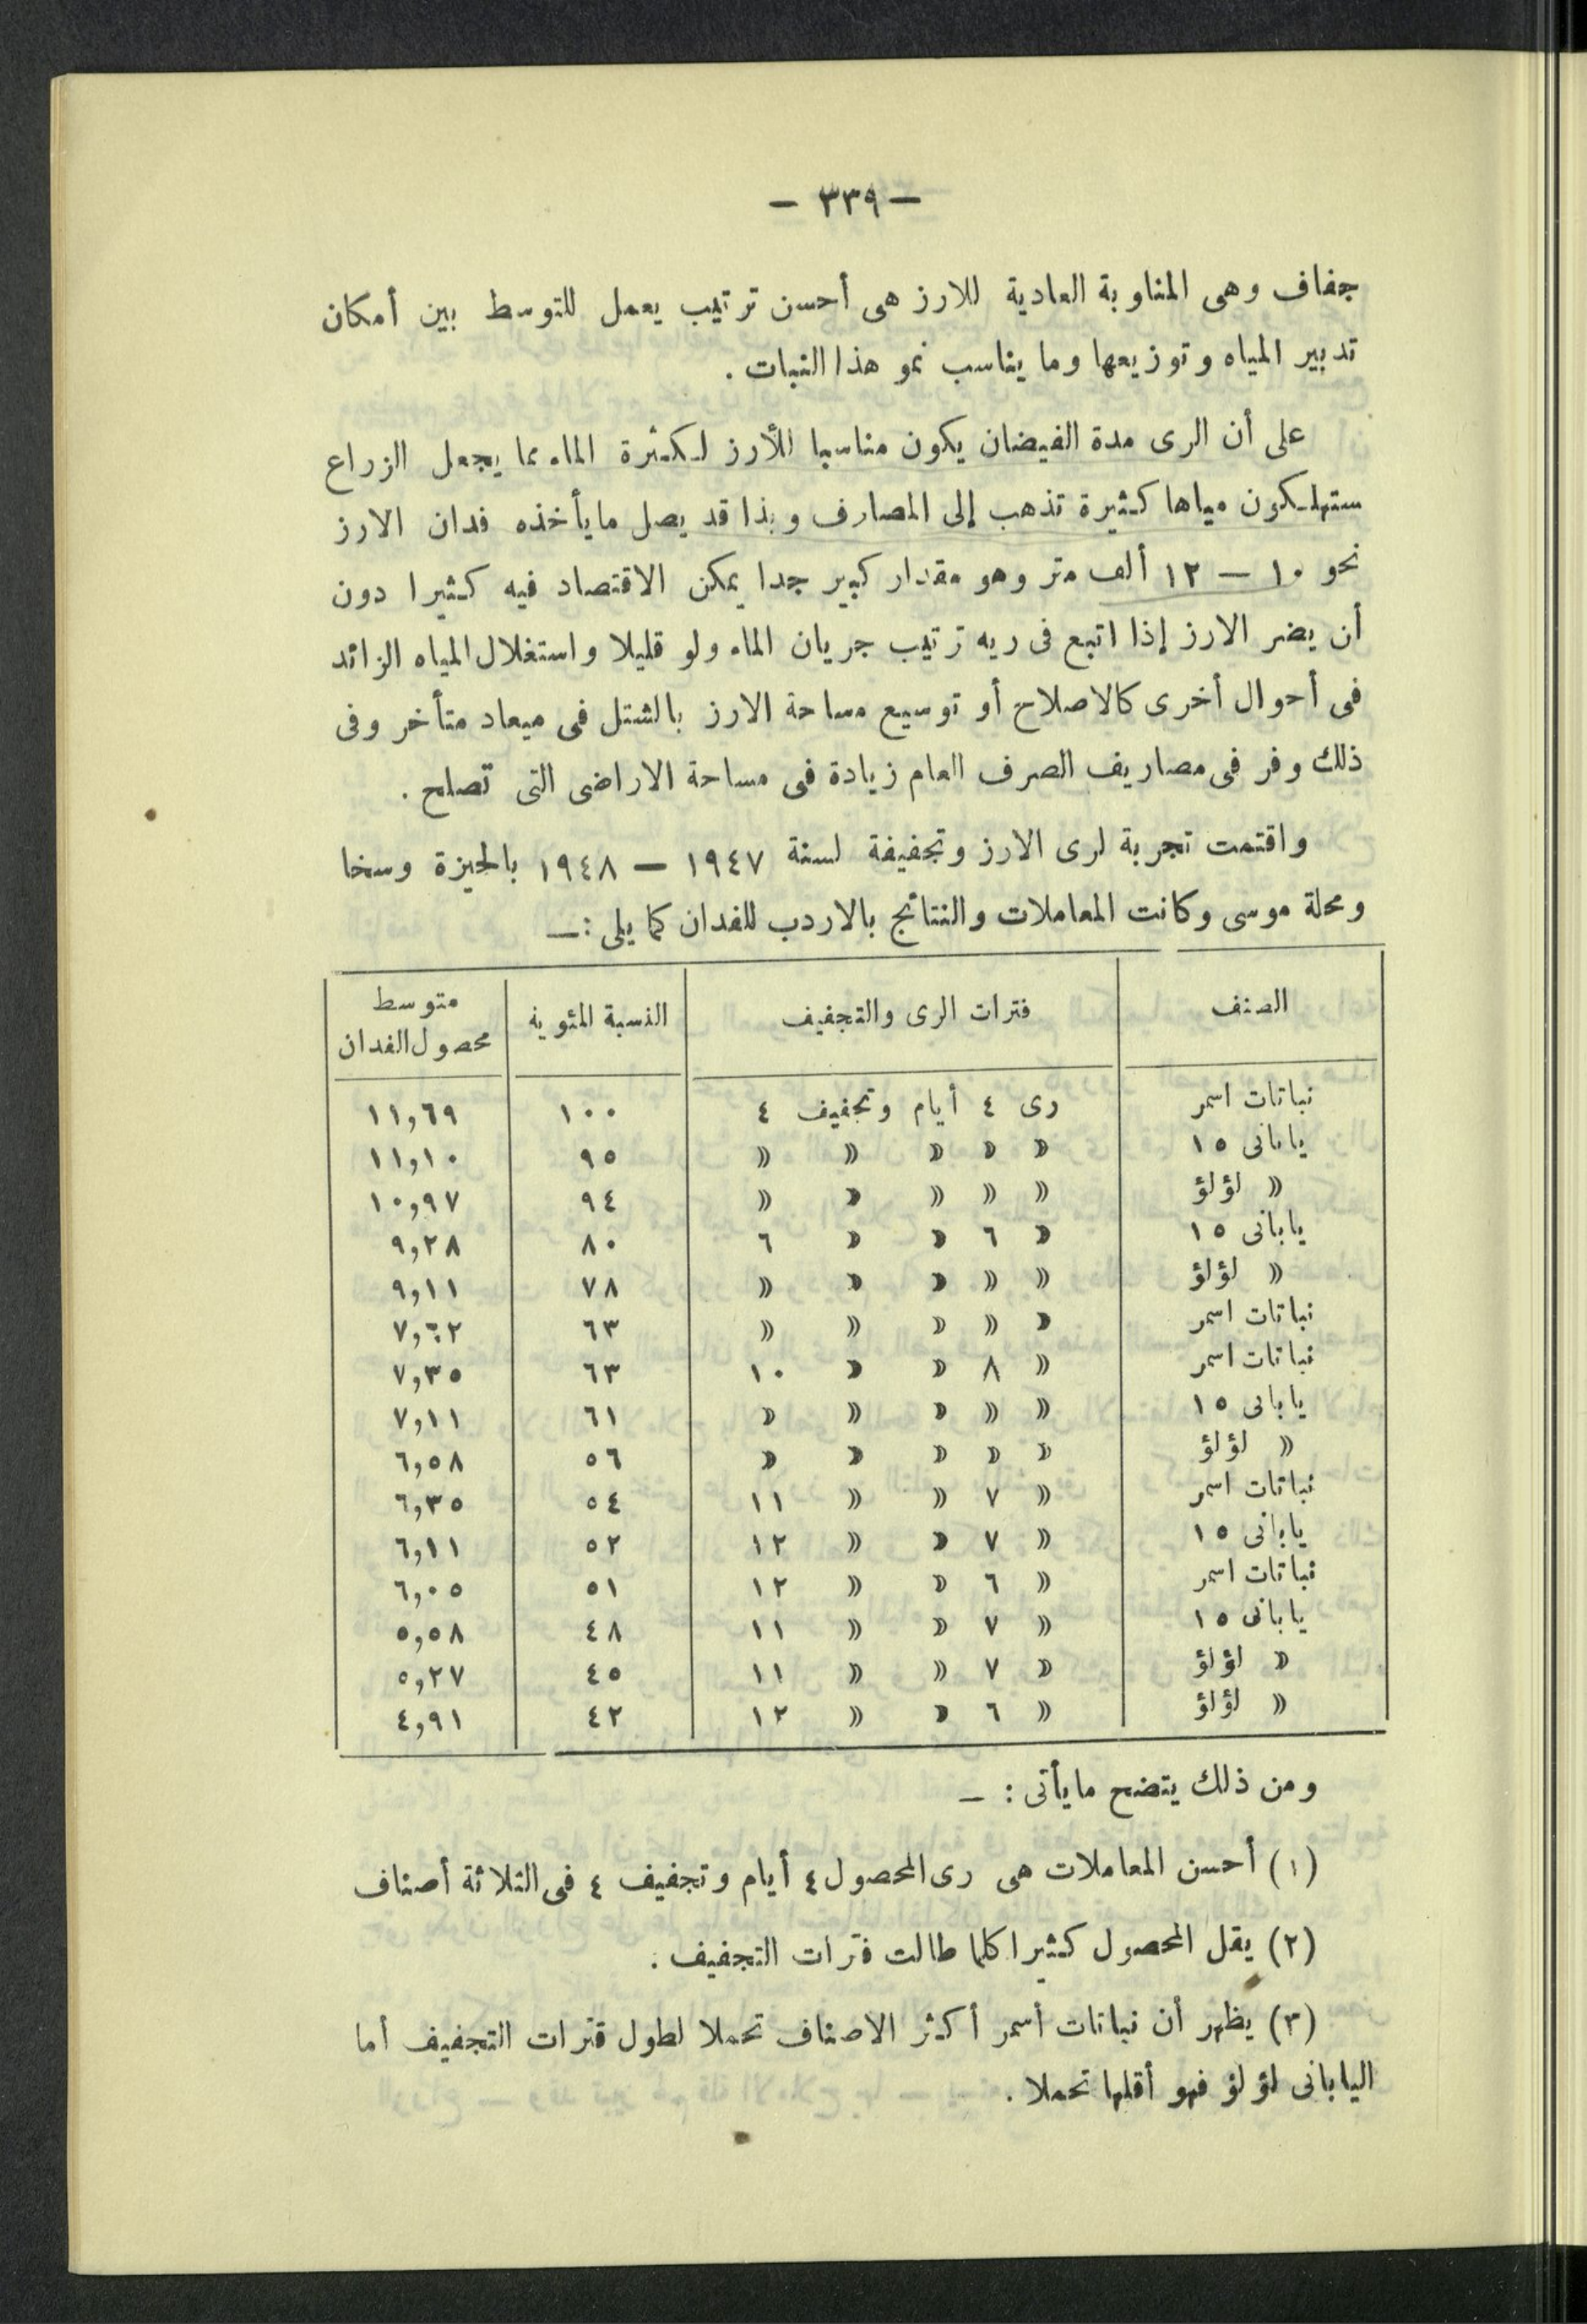 — ٣٣٩ —
جفاف وهى المناوبة العادية للارز هى أحسن ترتيب يعمل للتوسط بين أمكان
تدبير المياه وتوزيعها وما يناسب نمو هذا النبات .
على أن الرى مدة الفيضان يكون مناسبا للأرز لكثرة الماء مما يجعل الزراع
ستهلكون مياها كثيرة تذهب إلى المصارف وبذا قد يصل مايأخذه فدان الارز
نحو ١٠ — ١٢ ألف متر وهو مقدار كبير جدا يمكن الاقتصاد فيه كثيرا دون
أن يضر الارز إذا اتبع فى ريه ترتيب جريان الماء ولو قليلا واستغلال المياه الزائد
فى أحوال أخرى كالاصلاح أو توسيع مساحة الارز بالشتل فى ميعاد متأخر وفى
ذلك وفر فى مصاريف الصرف العام زيادة فى مساحة الاراضى التى تصلح .
واقتمت تجربة لرى الارز وتجفيفة لسنة ١٩٤٧ — ١٩٤٨ بالجيزة وسخا
ومحلة موسى وكانت المعاملات والنتائج بالاردب للفدان كما يلى :—
الصنف فترات الرى والتجفيف النسبة المئوية متوسط
محصول الفدان
نباتات اسمر رى ٤ أيام وتجفيف ٤ ١٠٠ ١١,٦٩
يابانى ١٥ » » » » » ٩٥ ١١,١٠
» لؤلؤ » » » » » ٩٤ ١٠,٩٧
يابانى ١٥ » ٦ » » ٦ ٨٠ ٩,٢٨
» لؤلؤ » » » » » ٧٨ ٩,١١
نباتات اسمر » » » » » ٦٣ ٧,٦٢
نباتات اسمر » ٨ » » ١٠ ٦٣ ٧,٣٥
يابانى ١٥ » » » » » ٦١ ٧,١١
» لؤلؤ » » » » » ٥٦ ٦,٥٨
نباتات اسمر » ٧ » » ١١ ٥٤ ٦,٣٥
يابانى ١٥ » ٧ » » ١٢ ٥٢ ٦,١١
نباتات اسمر » ٦ » » ١٢ ٥١ ٦,٠٥
يابانى ١٥ » ٧ » » ١١ ٤٨ ٥,٥٨
» لؤلؤ » ٧ » » ١١ ٤٥ ٥,٢٧
» لؤلؤ » ٦ » » ١٢ ٤٢ ٤,٩١
ومن ذلك يتضح مايأتى : —
(١) أحسن المعاملات هى رى المحصول ٤ أيام وتجفيف ٤ فى الثلاثة أصناف
(٢) يقل المحصول كثيرا كلما طالت فترات التجفيف .
(٣) يظهر أن نباتات أسمر أكثر الاصناف تحملا لطول فترات التجفيف أما
اليابانى لؤلؤ فهو أقلها تحملا .